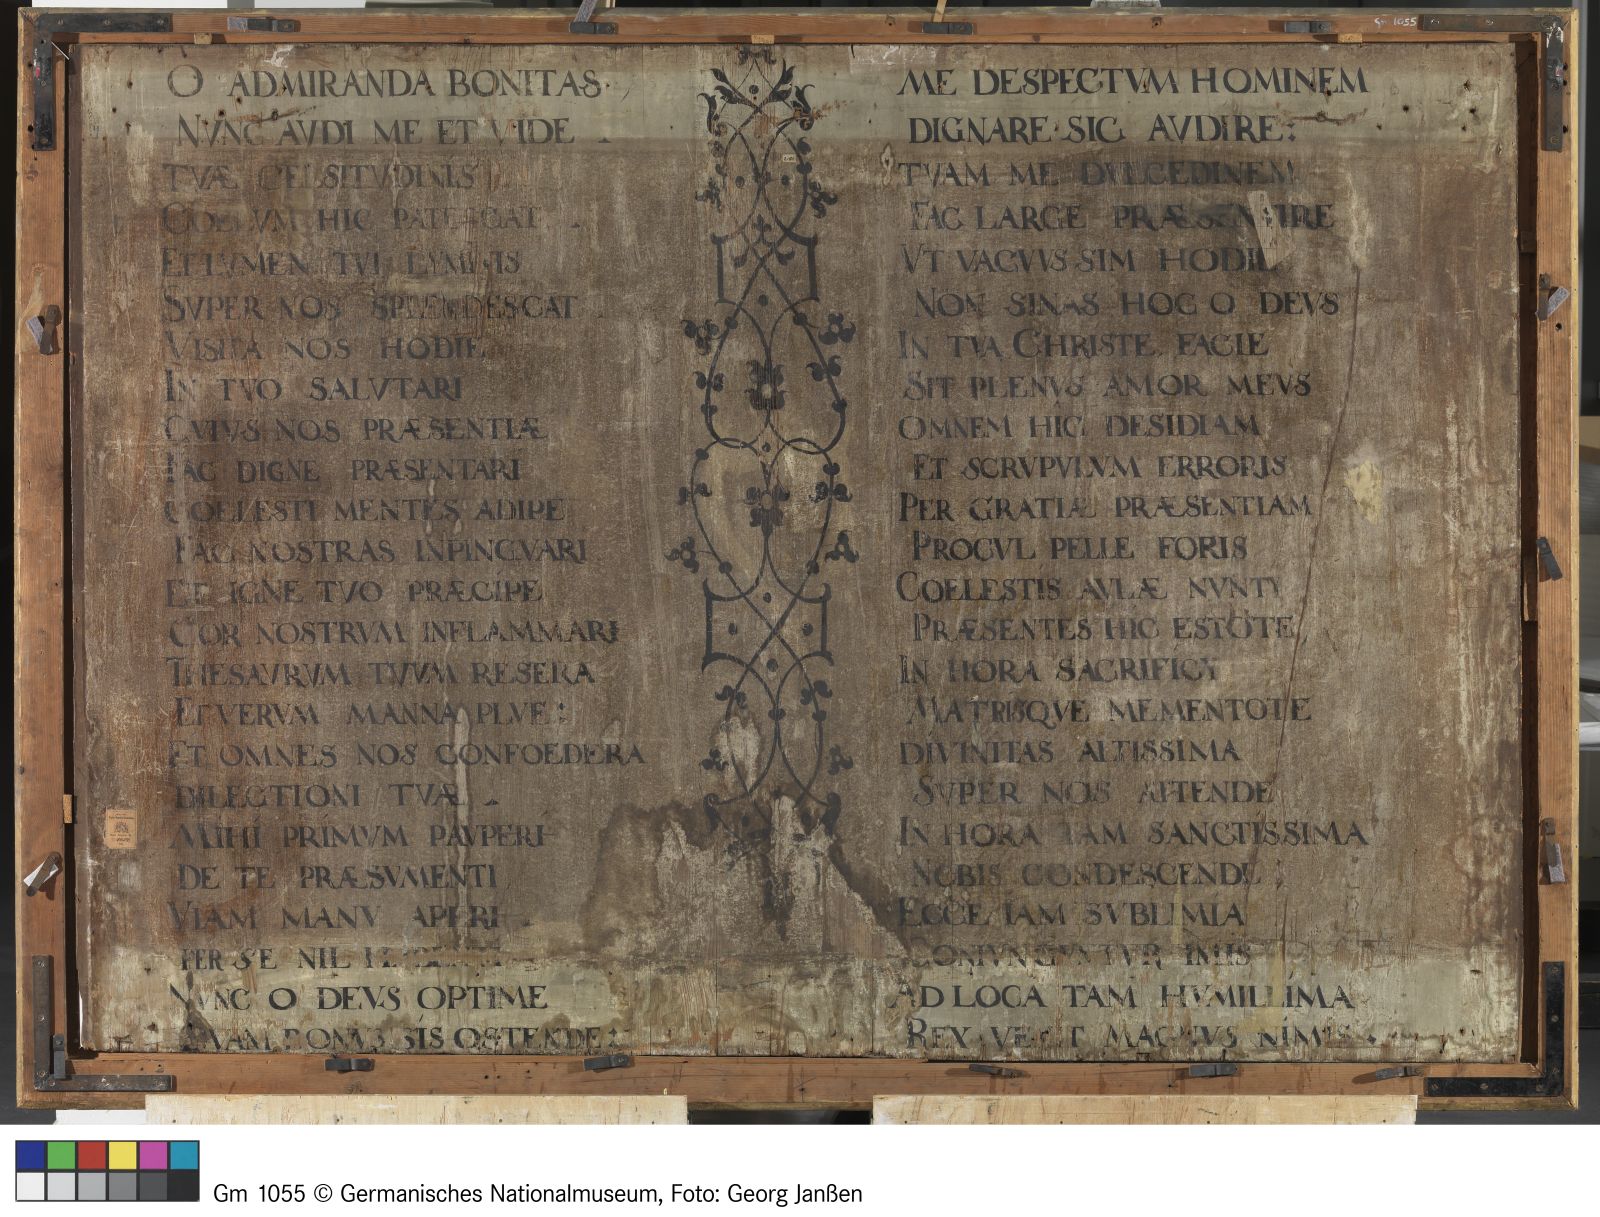 O ADMIRANDA BONITAS
NVNC AVDI ME ET VIDE
TVÆ CELSITVDINIS
COELVM HIC PATESCAT
ET LVMEN TVI LVMINIS
SVPER NOS SPLENDESCAT
VISITA NOS HODIE
IN TVO SALVTARI
CVIVS NOS PRÆSENTIÆ
FAC DIGNE PRÆSENTARI
COELESTI MENTES ADIPE
FAC NOSTRAS INPINGVARI
ET IGNE TVO PRÆCIPE
COR NOSTRVM INFLAMMARI
THESAVRVM TVVM RESERA
ET VERVM MANNA PLVE:
ET OMNES NOS CONFOEDERA
DILECTIONI TVÆ
MIHI PRIMVM PAVPERI
DE TE PRÆSVMENTI
VIAM MANV APERI
PER SE NIL
NVNC O DEVS OPTIME
QVAM BONVS SIS OSTENDE:
ME DESPECTVM HOMINEM
DIGNARE SIC AVDIRE:
TVAM ME DVLCEDINEM
FAC LARGE PRÆSENTIRE
VT VACVVS SIM HODIE
NON SINAS HOC O DEVS
IN TVA CHRISTE FACIE
SIT PLENVS AMOR MEVS
OMNEM HIC DESIDIAM
ET SCRVPVLVM ERRORIS
PER GRATIÆ PRÆSENTIAM
PROCVL PELLE FORIS
COELESTIS AVLÆ NVNTY
PRÆSENTES HIC ESTOTE
IN HORA SACRIFICY
MATRISQVE MEMENTOTE
DIVINITAS ALTISSIMA
SVPER NOS ATTENDE
IN HORA TAM SANCTISSIMA
NOBIS CONDESCENDE:
ECCE IAM SVBLIMIA
CONIVNGVNTVR IMIS
AD LOCA TAM HVMILLIMA
REX VENIT MAGNVS NIMIS
Gm 1055
Gm 1055 © Germanisches Nationalmuseum, Foto: Georg Janßen